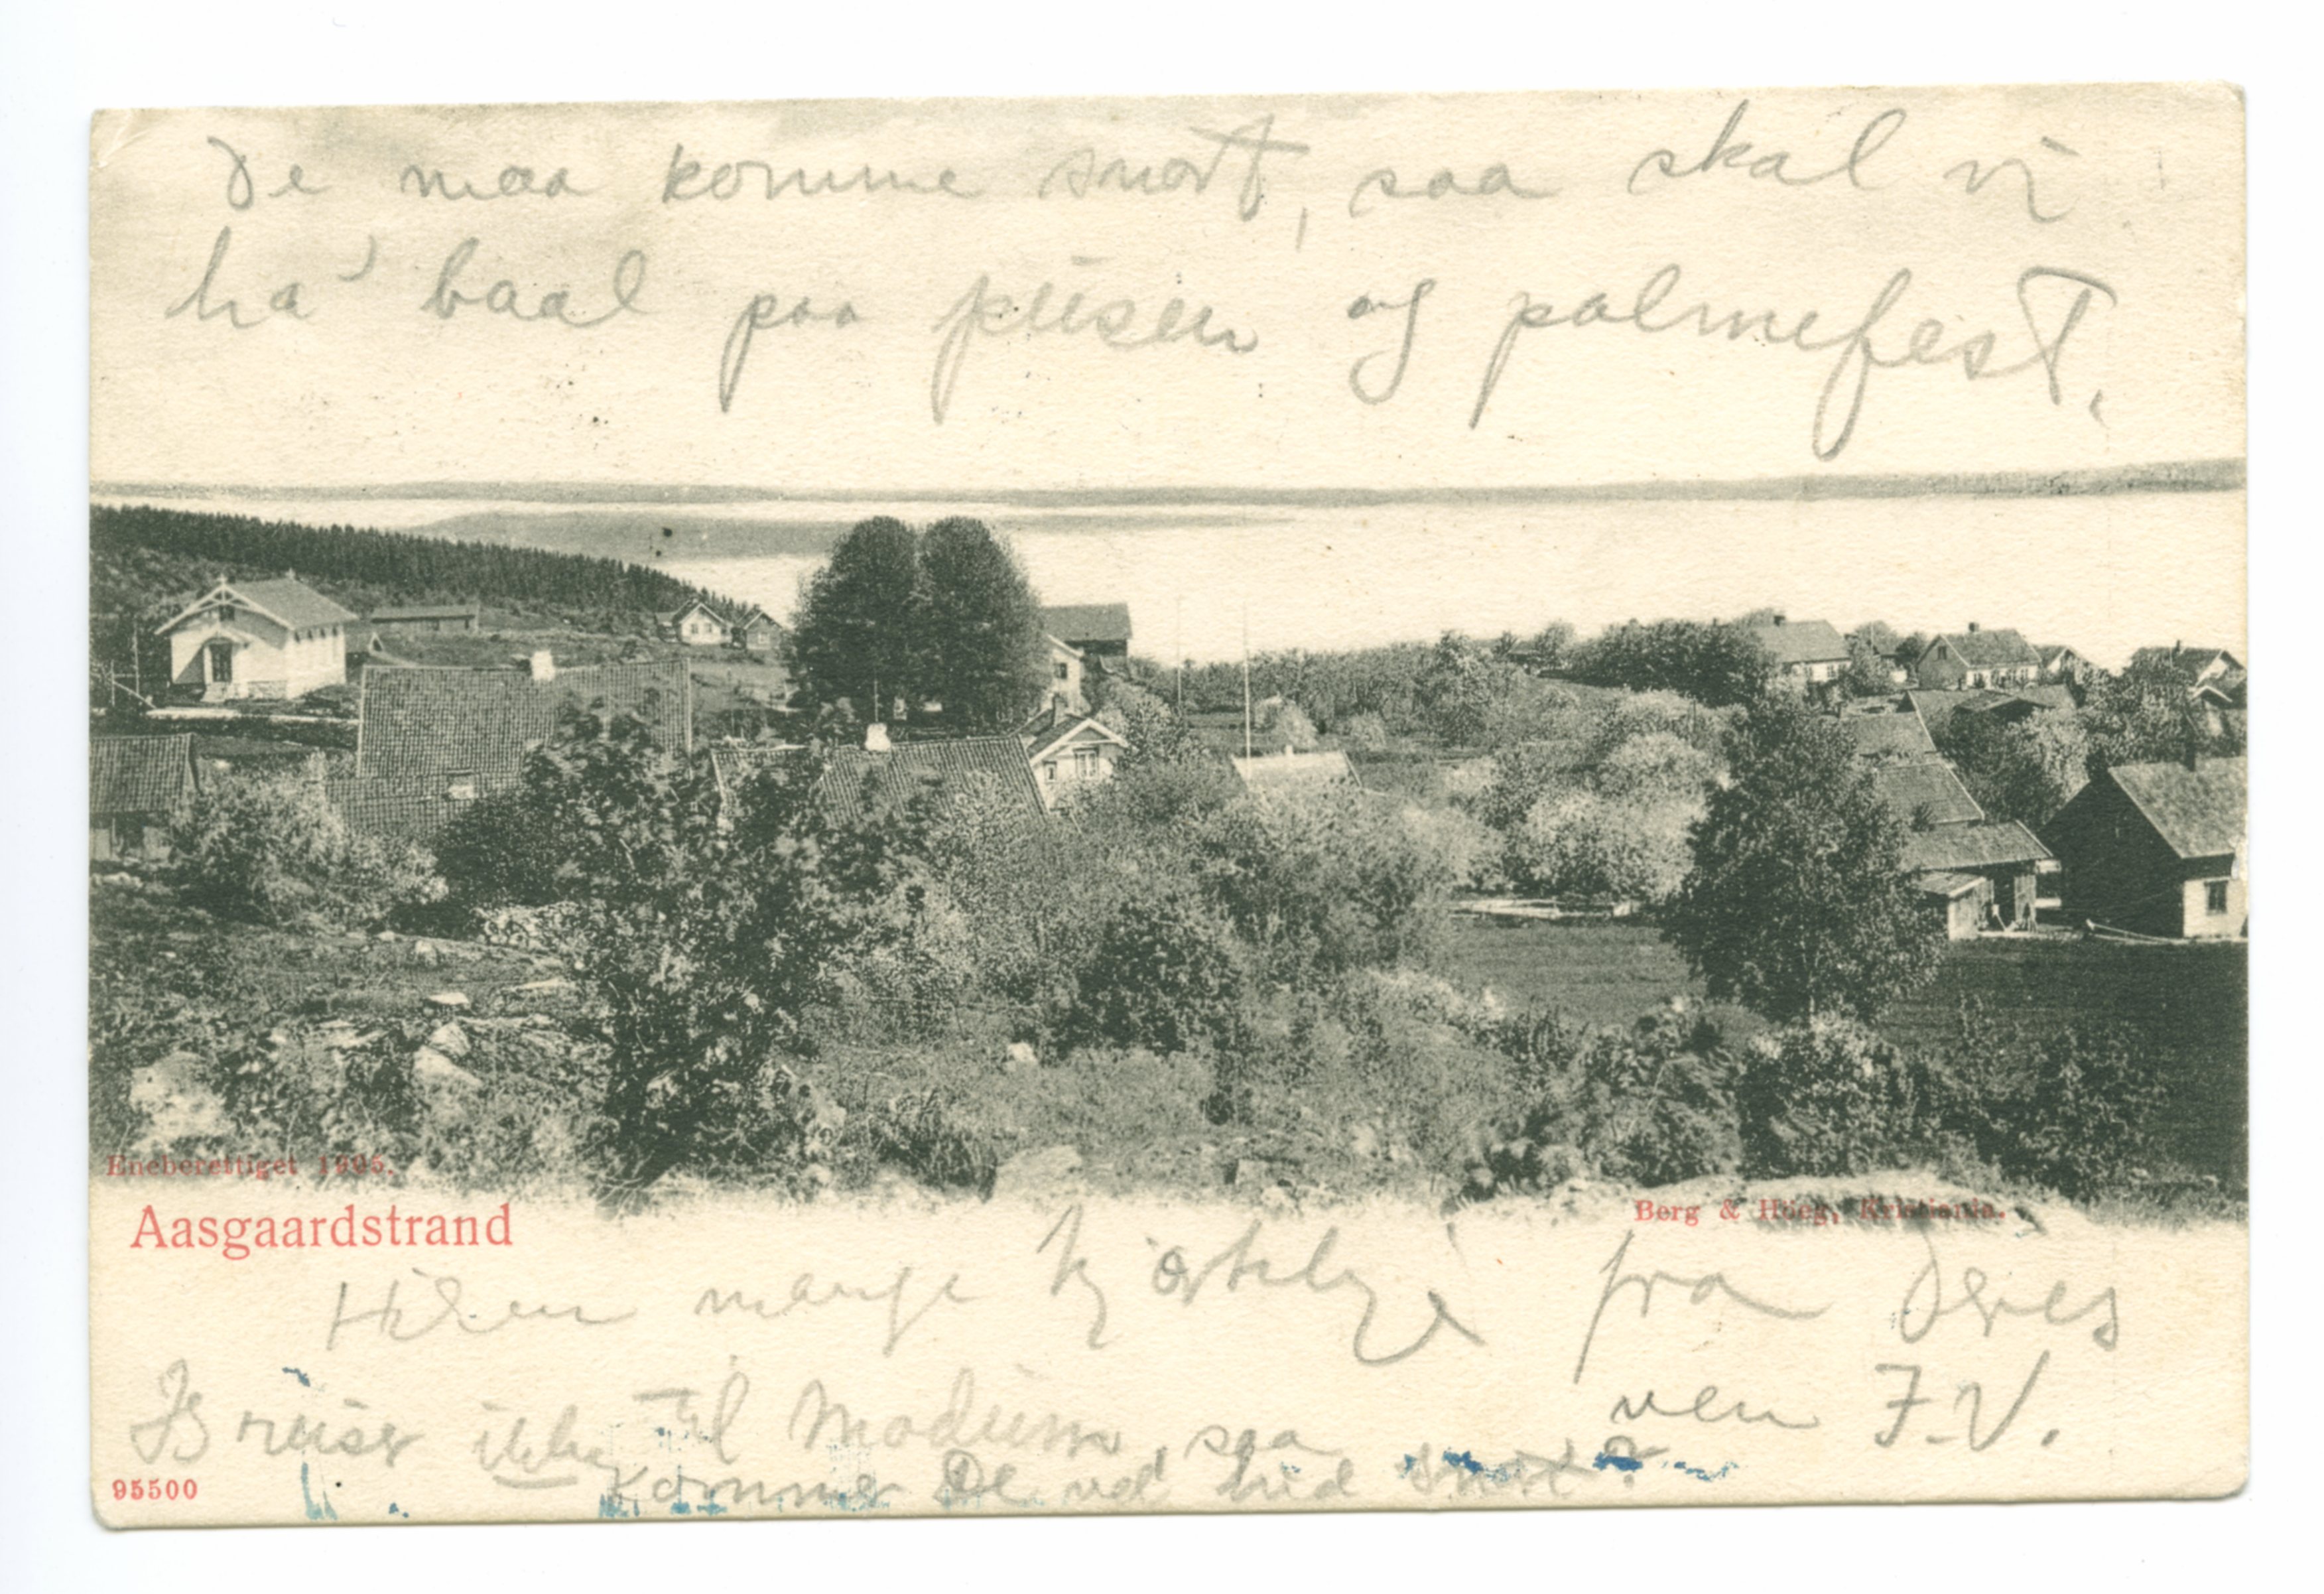 De maa komme snart, saa skal vi
ha' baal paa peisen og palmefest.
Eneberettiget 1905.
Aasgaardstrand
Berg & Höeg, Kristiania.
Hilsen mange hjertelige fra Deres
ven I. V.
Jeg reiser ikke til Modum, saa
kommer De vel hid snart?
95500